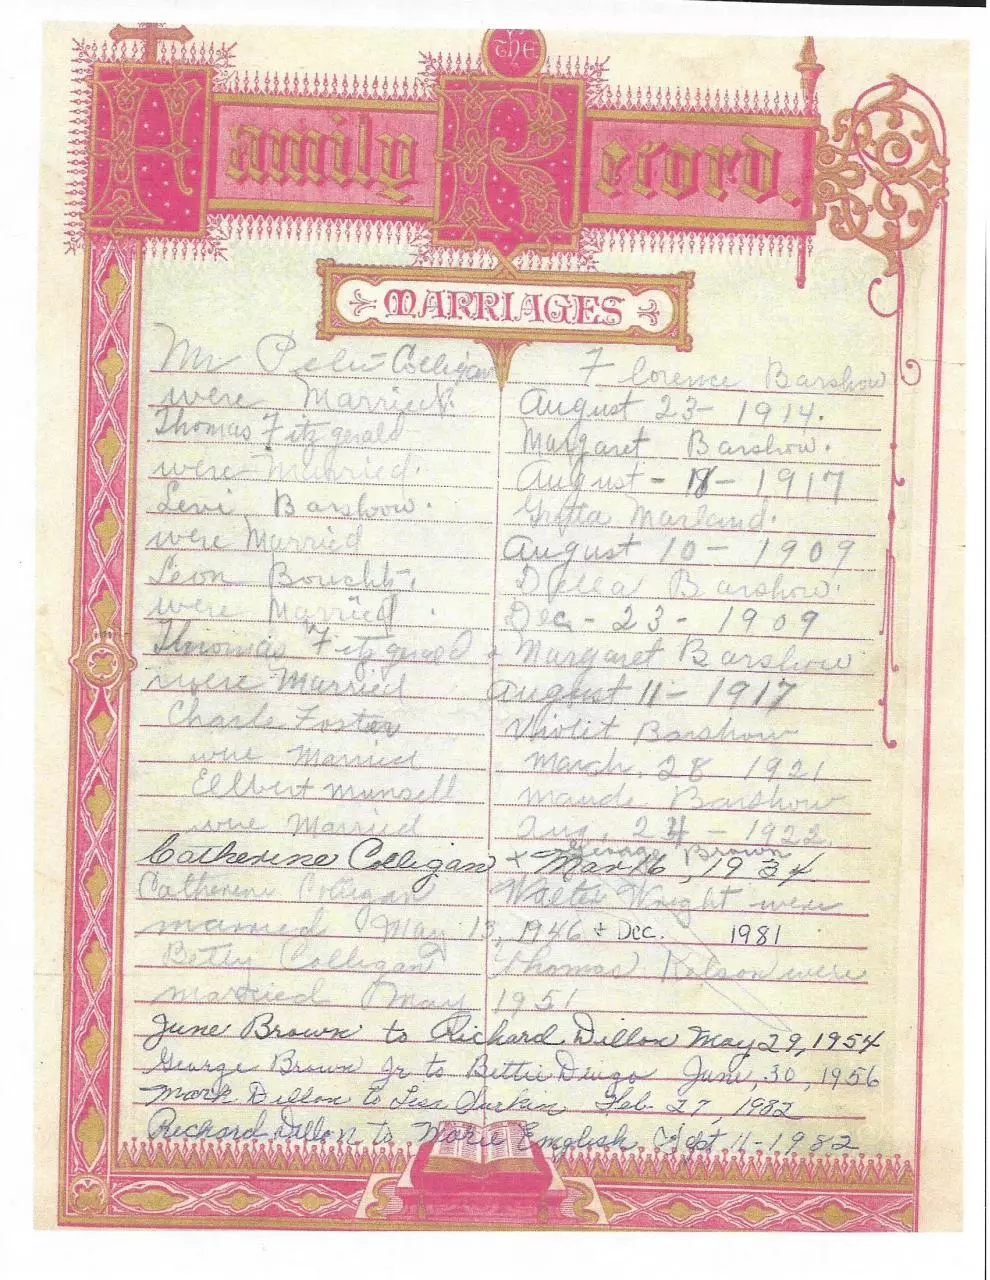 The
Family Record.
MARRIAGES
Mr Peter Colligan Florence Barshow
were Married. August 23- 1914.
Thomas Fitzgerald Margaret Barshow.
were Married. August - 18 - 1917
Levi Barshow. Marland.
were Married August 10 - 1909
Leon Della Barshow.
were Married. Dec - 23 - 1909
Thomas Fitzgerald & Margaret Barshow
were Married August 11 - 1917
Charle Foster Violet Barshow
were Married March. 28 1921
Ellbert Munsell Maude Barshow
were Married Aug, 24 - 1922
George Brown
Catherine Colligan + Mar 16, 1934
Catherine Colligan Walter Wright were
married May 13, 1946 + Dec. 1981
Betty Colligan Thomas were
married May 1951
June Brown to Richard Dillon May 29, 1954
George Brown Jr to Bettie June, 30, 1956
Mark Dillon to Lisa Feb. 27, 1982
Richard Dillon to Marie English Sept 11-1982